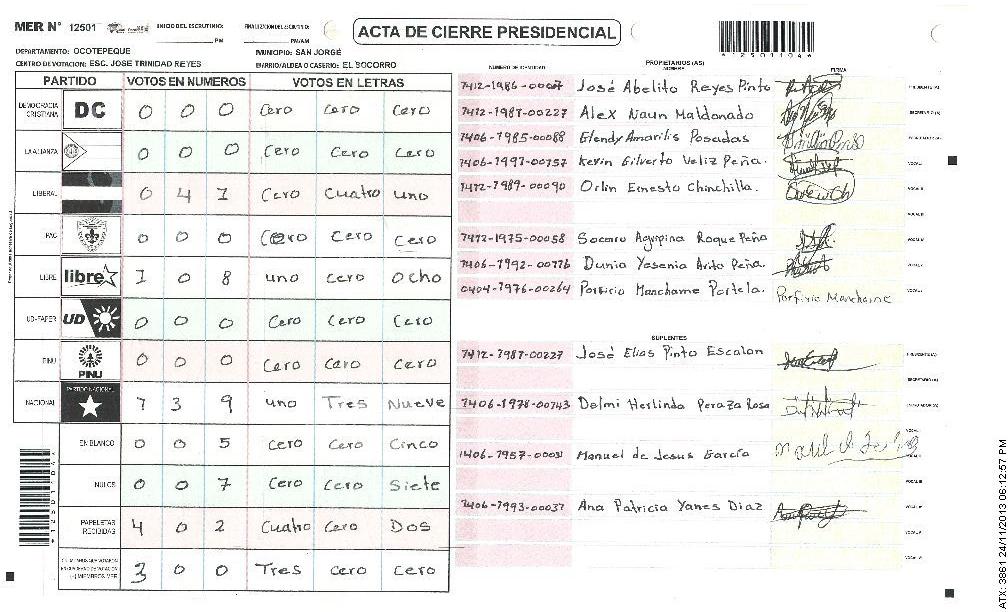 MER N° 12501 INICIO DEL ESCRUTINIO: PM FINALIZACION DEL ESCRUTINIO: PM/AM
ACTA DE CIERRE PRESIDENCIAL
DEPARTAMENTO: OCOTEPEQUE MUNICIPIO: SAN JORGE
CENTRO DE VOTACION: ESC. JOSE TRINIDAD REYES BARRIO/ALDEA O CASERIO: EL SOCORRO
PARTIDO VOTOS EN NUMEROS VOTOS EN LETRAS
DEMOCRACIA CRISTIANA DC 0 0 0 Cero Cero Cero
LA ALIANZA 0 0 0 Cero Cero Cero
LIBERAL 0 4 1 Cero Cuatro uno
PAC 0 0 0 Cero Cero Cero
LIBRE libre 1 0 8 uno cero Ocho
UD-FAPER UD 0 0 0 Cero Cero Cero
PINU PINU 0 0 0 Cero Cero Cero
NACIONAL PARTIDO NACIONAL 1 3 9 uno Tres Nueve
EN BLANCO 0 0 5 Cero Cero Cinco
NULOS 0 0 7 Cero Cero Siete
PAPELETAS RECIBIDAS 4 0 2 Cuatro Cero Dos
3 0 0 Tres cero Cero
PROPIETARIOS (AS)
NUMERO DE IDENTIDAD NOMBRE FIRMA
José Abelito Reyes Pinto PRESIDENTE (A)
1412-1987-00227 Alex Naun Maldonado SECRETARIO (A)
1406-1985-00088 Glendy Amarilis Posadas
1406-1997-00157 Kevin Gilverto Veliz Peña.
1412-1989-00090 Orlin Ernesto Chinchilla.
1412-1975-00058 Socorro Agripina Roque Peña
1406-1992-00176 Dunia Yesenia Arita Peña.
0404-1976-00264 Porfirio Manchame Portela. Porfirio Manchame
SUPLENTES
1412-1987-00227 José Elias Pinto Escalon PRESIDENTE (A)
SECRETARIO (A)
1406-1978-00143 Delmi Herlinda Peraza Rosa
1406-1957-00031 Manuel de Jesus García
1406-1993-00037 Ana Patricia Yanes Diaz
ATX: 3861 24/11/2013 06:12:57 PM